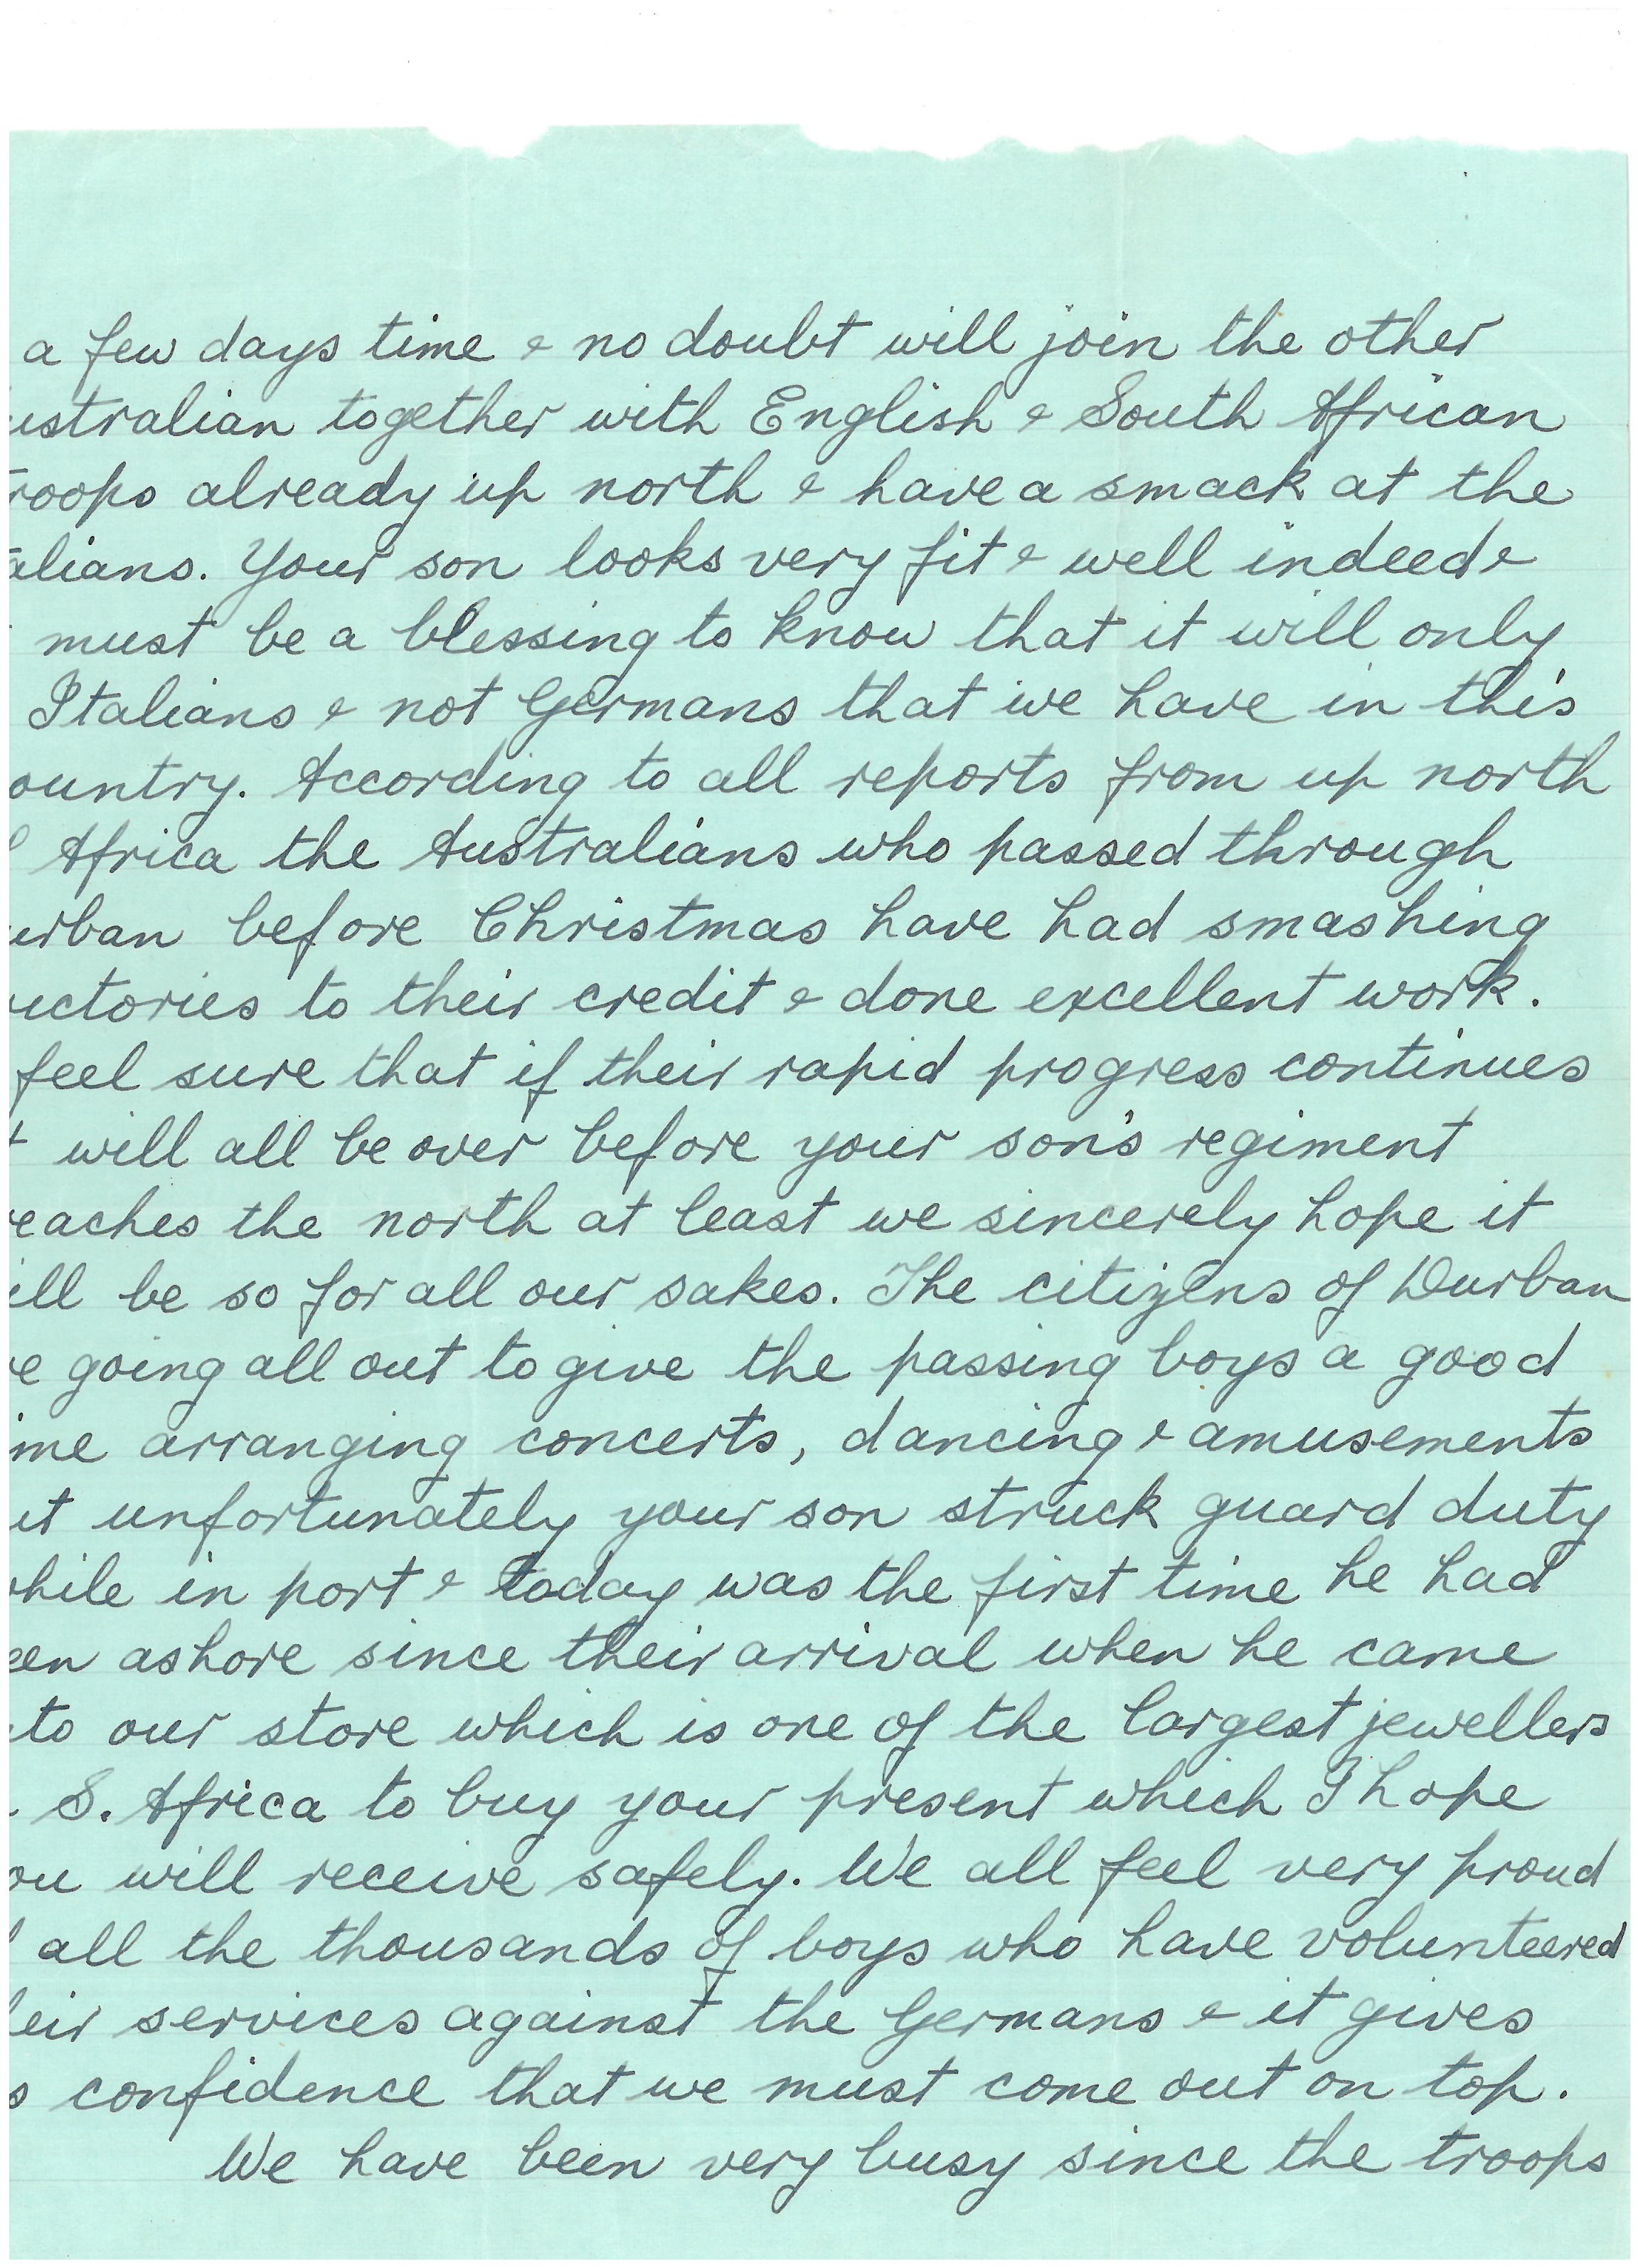 a few days time & no doubt will join the other
ustralian together with English & South African
roops already up north & have a smack at the
alians. Your son looks very fit & well indeed &
must be a blessing to know that it will only
Italians & not Germans that we have in this
ountry. According to all reports from up north
Africa the Australians who passed through
urban before Christmas have had smashing
ictories to their credit & done excellent work.
feel sure that if their rapid progress continues
t will all be over before your son's regiment
eaches the north at least we sincerely hope it
ill be so for all our sakes. The citizens of Durban
e going all out to give the passing boys a good
ime arranging concerts, dancing & amusements
ut unfortunately your son struck guard duty
hile in port & today was the first time he had
een ashore since their arrival when he came
to our store which is one of the largest jewellers
S. Africa to buy your present which I hope
ou will receive safely. We all feel very proud
all the thousands of boys who have volunteered
eir services against the Germans & it gives
s confidence that we must come out on top.
We have been very busy since the troops